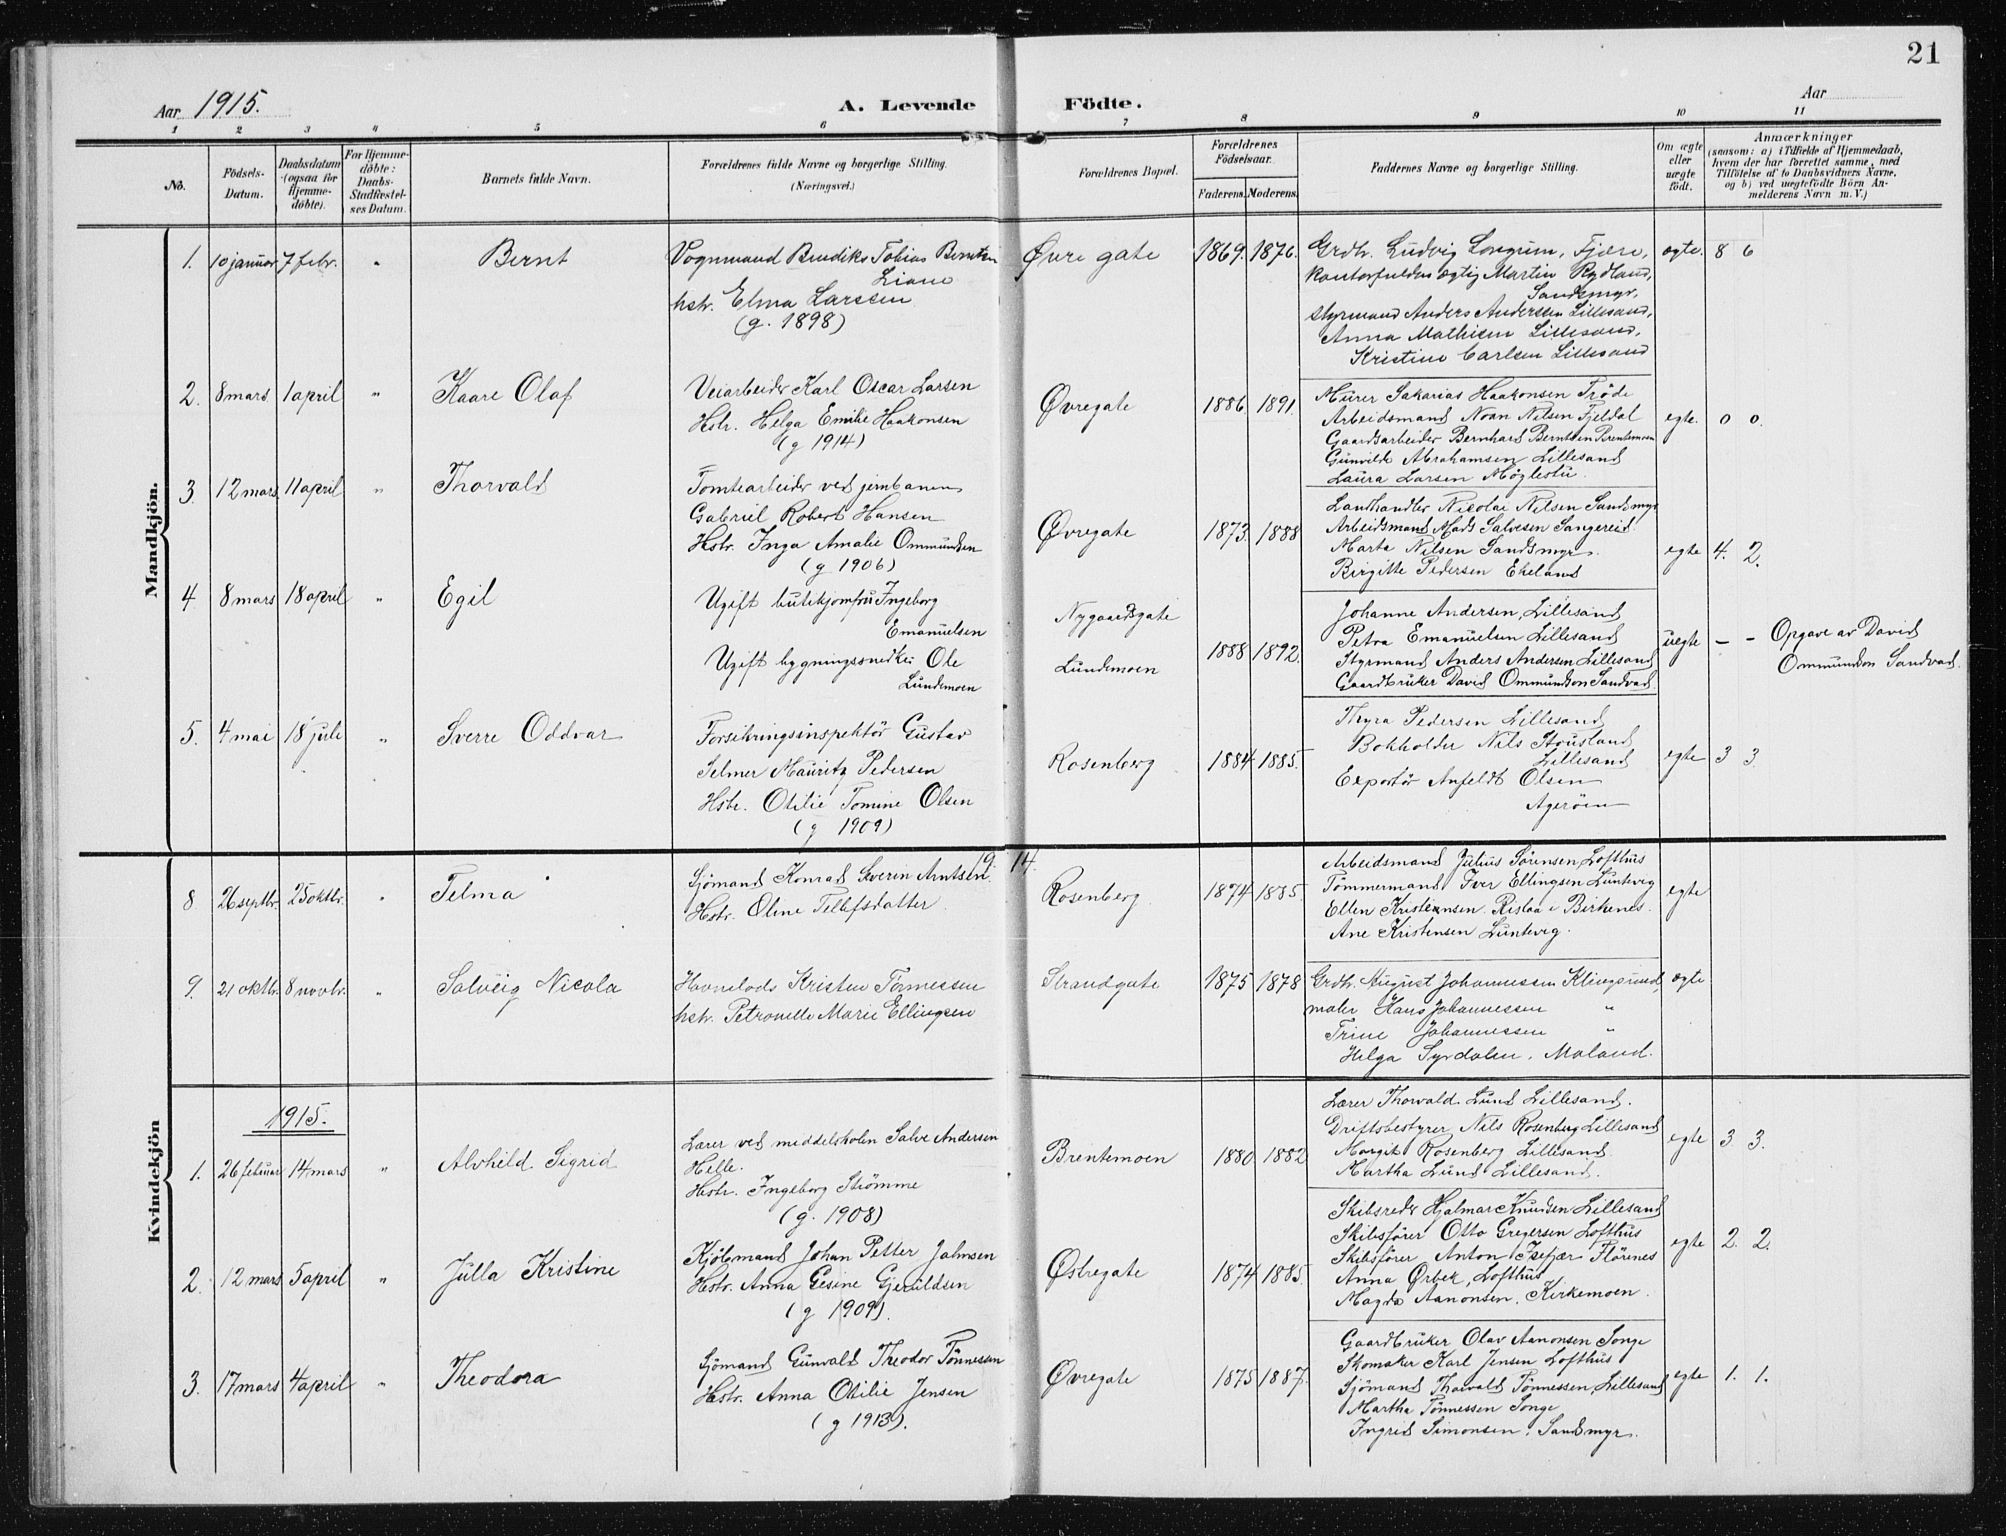 21
Aar 1915.
A. Levende Födte.
Aar
1 2 3 4 5 6 7 8 9 10 11
No.
Födsels-Datum.
Daabsdatum (ogsaa for Hjemmedöbte).
For Hjemmedöbte: Daabs-Stadfæstelses Datum.
Barnets fulde Navn.
Forældrenes fulde Navne og borgerlige Stilling.
(Næringsvei.)
Forældrenes Bopæl.
Forældrenes Födselsaar.
Faderens. Moderens.
Faddernes Navne og borgerlige Stilling.
Om ægte eller uægte födt.
Anmærkninger
(saasom: a) i Tilfælde af Hjemmedaab, hvem der har forrettet samme, med Tilföielse af to Daabsvidners Navne, og b) ved uægtefödte Börn Anmelderens Navn m. V.)
Mandkjön.
1. 10 januar 7 febr. " Bernt
Vognmand Bendiks Tobias Berntsen
Liane
hstr. Elma Larssen
(g. 1898)
Øvre gate 1869. 1876.
Grdbr. Ludvig Longum, Fjære,
kontorfuldmægtig Martin Rydland,
Sandsmyr,
styrmand Anders Andersen Lillesand,
Anna Mathisen Lillesand,
Kristine Carlsen Lillesand
ægte. 8 6
2. 8 mars 1 april " Kaare Olaf
Veiarbeider Karl Oscar Larsen
Hstr. Helga Emilie Haakonsen
(g 1914)
Øvregate 1886. 1891.
Murer Sakarias Haakonsen Tröde
Arbeidsmand Noan Nilsen Fjeldal
Gaardsarbeider Bernhard Berntsen Brentemoen
Gunvilde Abrahamsen Lillesand
Laura Larsen Møglestu.
egte. 0 0.
3. 12 mars 11 april " Thorvald
Tomtearbeider ved jernbanen
Gabriel Robert Hansen
Hstr. Inga Amalie Ommundsen
(g 1906)
Øvregate 1873. 1888
Landhandler Nicolai Nilsen Sandsmyr
Arbeidsmand Mads Salvesen Sangereid
Marta Nilsen Sandsmyr.
Birgitte Pedersen Ekeland
egte 4. 2.
4 8 mars 18 april " Egil
Ugift butikjomfru Ingeborg
Emanuelsen
Ugift bygningssnedker Ole
Lundemoen
Nygaardsgate
Lundemoen
1888 1892.
Johanne Andersen, Lillesand
Petra Emanuelsen Lillesand
Styrmand Anders Andersen Lillesand
Gaardbruker David Ommundson Sandvad.
uegte – –
Opgave av David
Ommundson Sandvad.
5. 4 mai 18 juli " Sverre Oddvar
Forsikringsinspektör Gustav
Selmer Mauritz Pedersen
Hstr. Otilie Tomine Olsen
(g 1909)
Rosenberg 1884 1885.
Thyra Pedersen Lillesand
Bokholder Nils Stousland
Lillesand
Exportör Anfeldt Olsen
Agerøen
egte 3 3.
Kvindekjön
1914.
8 26 septbr. 25 oktbr. " Telma
Sjömand Konrad Severin Arntsen
Hstr. Oline Tellefsdatter.
Rosenberg 1874 1885.
Arbeidsmand Julius Sørensen, Lofthus
Tömmermand Iver Ellingsen Luntevig
Ellen Kristensen Rislaa i Birkenes.
Ane Kristensen Luntevig.
egte
9. 21 oktbr. 8 novbr. " Solveig Nicola
Havnelods Kristen Tønnessen
hstr. Petronelle Marie Ellingsen
Strandgate 1875 1878
Grdbr. August Johannessen Klingsund,
maler Hans Johannessen "
Trine Johannessen "
Helga Syrdalen, Moland.
ægte
1915.
1. 26 februar 14 mars " Alvhild Sigrid
Lærer ved middelskolen Salve Andersen
Helle.
Hstr. Ingeborg Strömme
(g. 1908)
Brentemoen 1880. 1882
Lærer Thorvald Lund Lillesand.
Driftsbestyrer Nils Rosenberg Lillesand
Margit Rosenberg Lillesand.
Martha Lund Lillesand.
egte 3. 3.
2. 12 mars 5 april " Julla Kristine
Kjöbmand Johan Petter Jahnsen
Hstr. Anna Gesine Gjeruldsen
(g 1909).
Østregate 1874 1885.
Skibsreder Hjalmar Knudsen Lillesand
Skibsfører Otto Gregersen Lofthus
Skibsfører Anton Isefjær Flörenes
Anna Ørbek, Lofthus
Magda Aanonsen, Kirkemoen.
egte 2. 2.
3. 17 mars 4 april " Theodora
Sjömand Gunvald Theodor Tönnessen
Hstr. Anna Otilie Jensen
(g 1913).
Øvregate 1875 1887.
Gaardbruker Olav Aanonsen Songe
Skomaker Karl Jensen Lofthus
Sjömand Thorvald Tønnessen, Lillesand
Martha Tønnessen Songe
Ingrid Simonsen, Sandsmyr.
egte 1. 1.